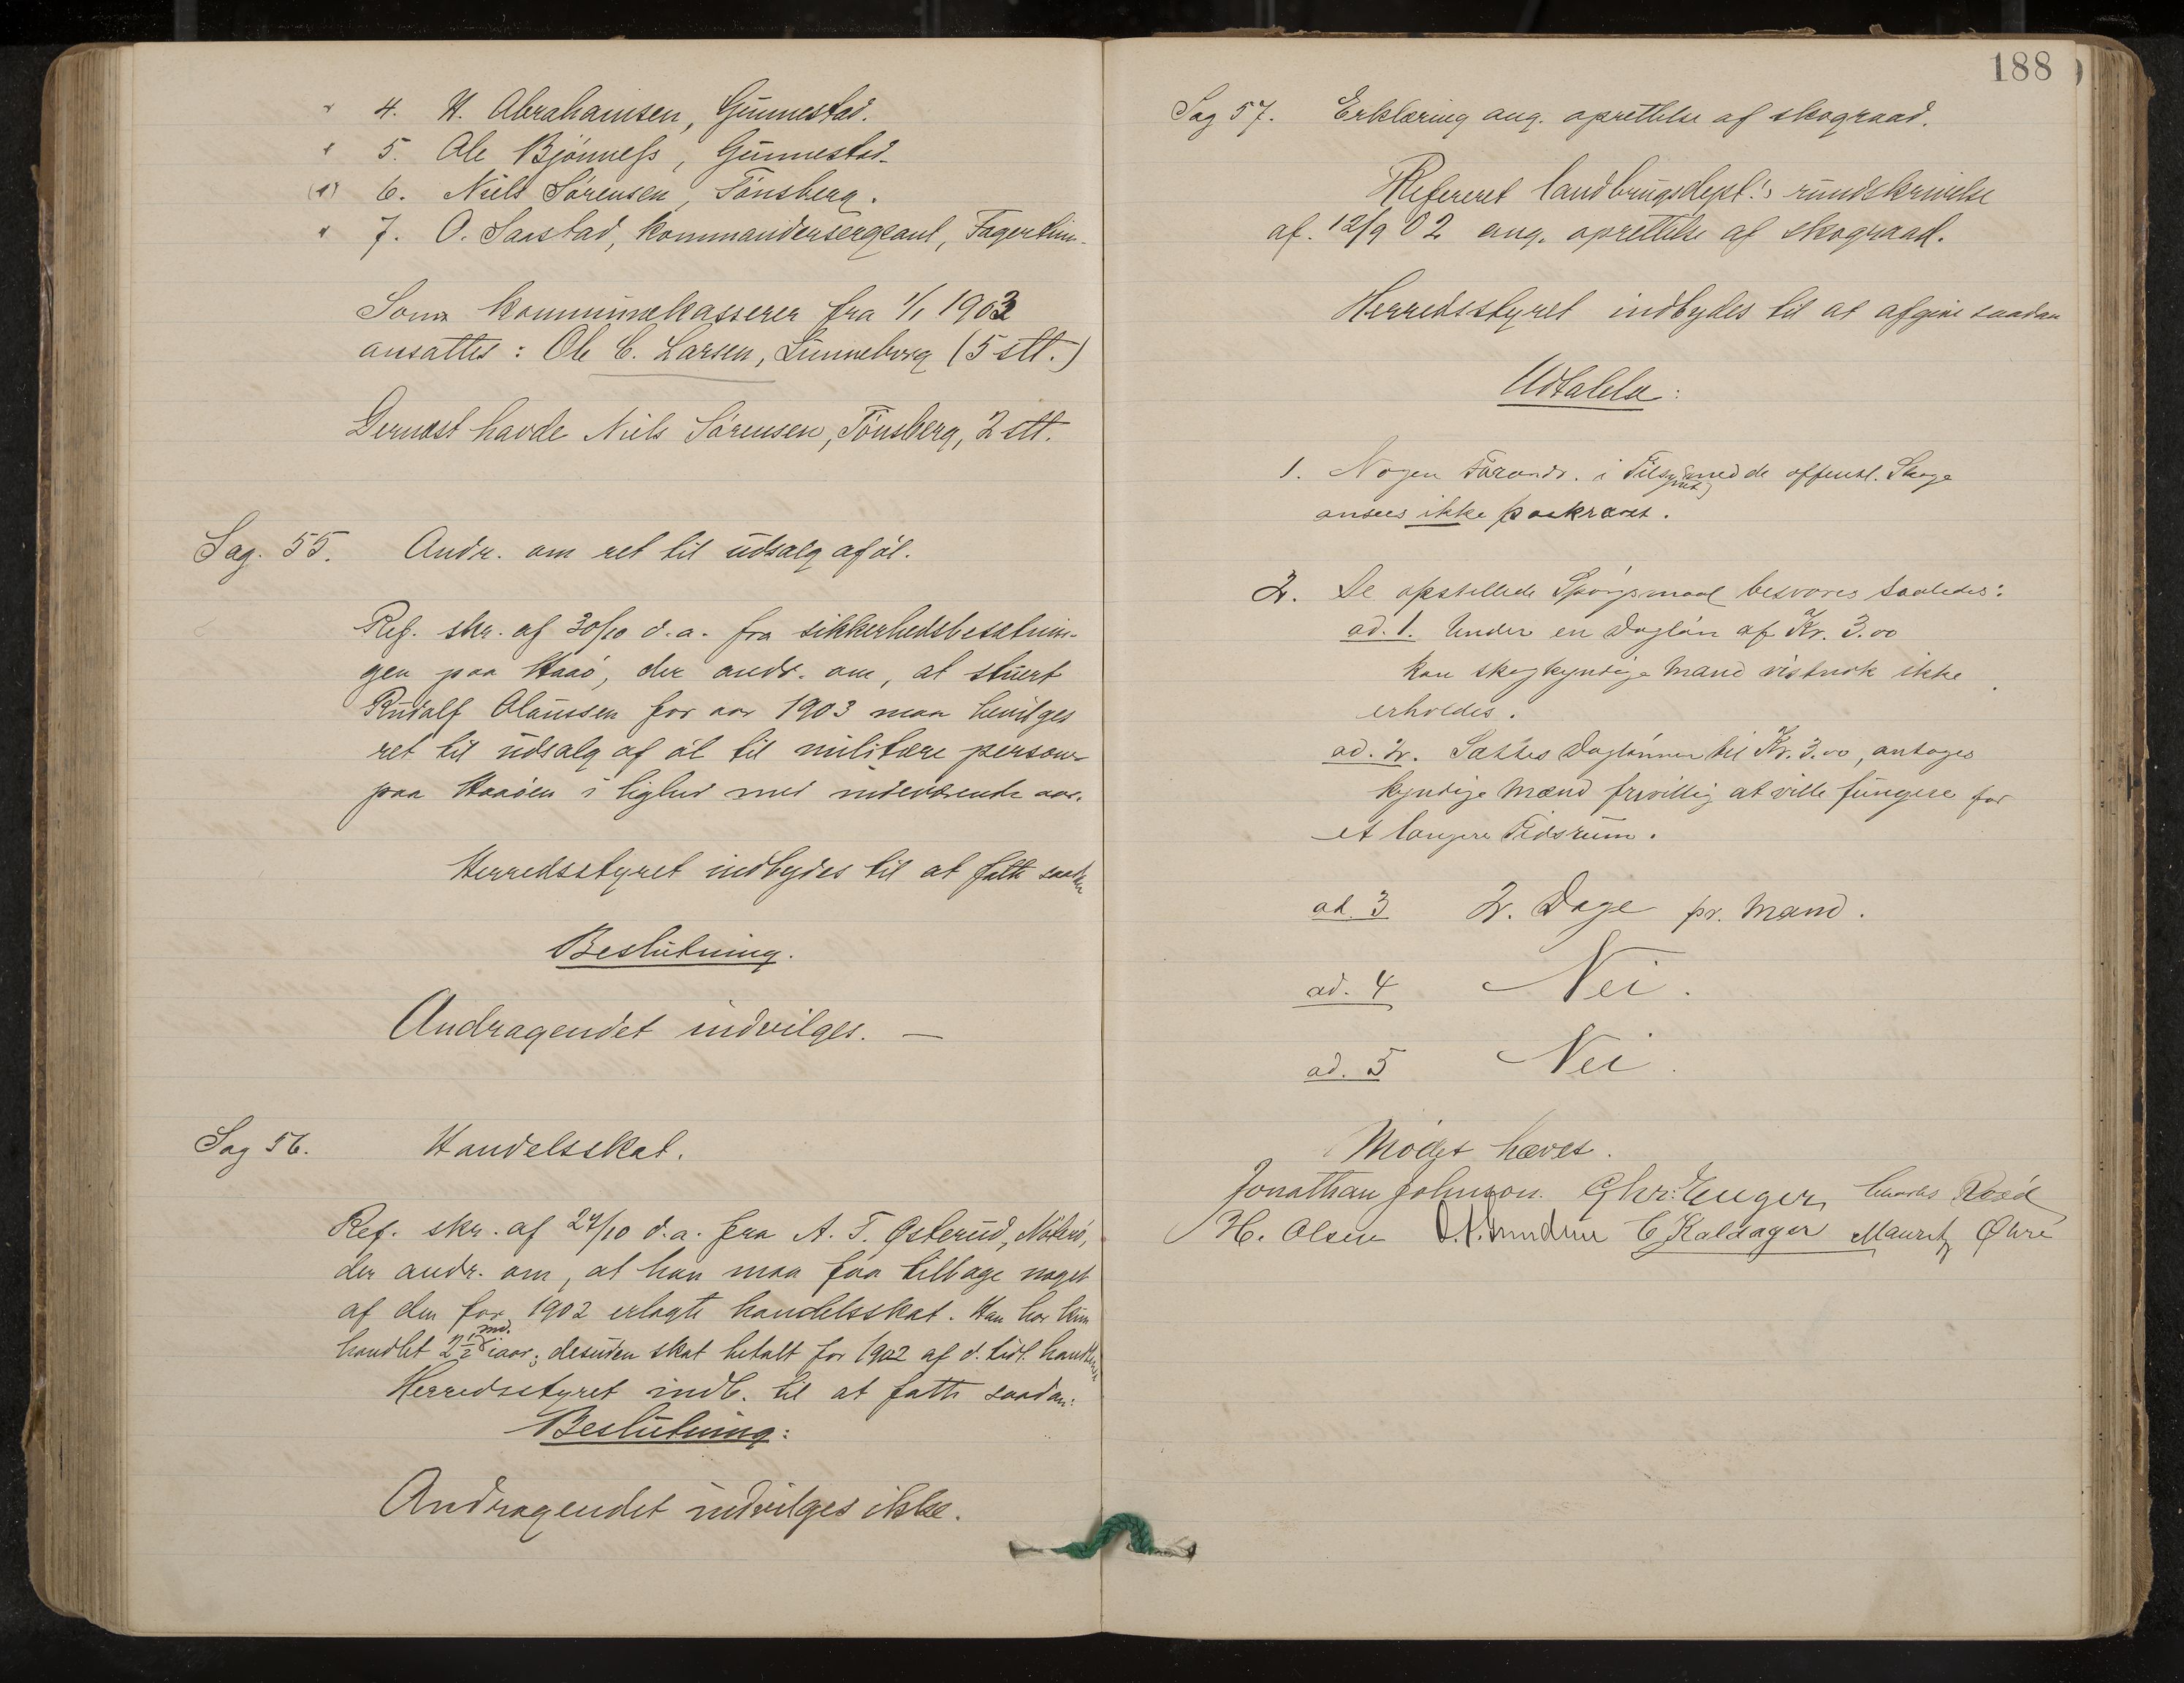 4. H. Abrahamsen, Gunnestad.
5. Ole Bjønness, Gunnestad.
(1) 6. Niels Sørensen, Tønsberg.
7. O. Saastad, kommandersergeant,
Som kommunekasserer fra 1/1 1903
ansattes: Ole C. Larsen, Linneborg (5 stt.)
Dernæst havde Niels Sørensen, Tønsberg, 2 stt.
Sag. 55. Andr. om ret til udsalg af øl.
Ref. skr. af 30/10 d.a. fra sikkerhedsbesætnin-
gen paa Haaø, der andr. om, at stuert
Rudolf Olaussen for aar 1903 maa bevilges
ret til udsalg af øl til militære person.
paa Haaøen i lighed med indeværende aar.
Herredsstyret indbydes til at fatte saadan
Beslutning.
Andragendet indvilges. —
Sag 56. Handelsskat.
Ref. skr. af 24/10 d.a. fra A. T. Østerud, Nøterø,
der andr. om, at han maa faa tilbage noget
af den for 1902 erlagte handelsskat. Han har kun
handlet 2 1/2 md. i aar; desuden skat betalt for 1902 af d. tidl.
Herredsstyret indb. til at fatte saadan:
Beslutning:
Andragendet indvilges ikke.
188
Sag 57. Erklæring ang. oprettelse af skograad.
Refereret landbrugsdept.'s rundskrivelse
af. 12/9 02 ang. oprettelse af skograad.
Herredsstyret indbydes til at afgive saadan
Udtalelse:
1. Nogen Forandr. i Tilsynet med de offentl. Skoge
ansees ikke paakrævet.
2. De opstillede Spørgsmaal besvares saaledes:
ad. 1. Under en Dagløn af Kr. 3.00
kan skogkyndige Mænd vistnok ikke
erholdes.
ad. 2. Sættes Daglønnen til Kr. 3.00, antages
kyndige Mænd frivillig at ville fungere for
et længere Tidsrum.
ad. 3 2. Dage pr. Mand.
ad. 4 Nei.
ad. 5 Nei.
Mødet hævet.
Jonathan Johnson. Chr. Enger,
H. Olsen C Kaldager Mauritz Øhre